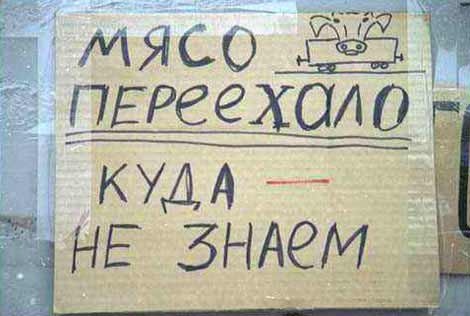 МЯСО
ПЕРЕЕХАЛО
КУДА —
НЕ ЗНАЕМ